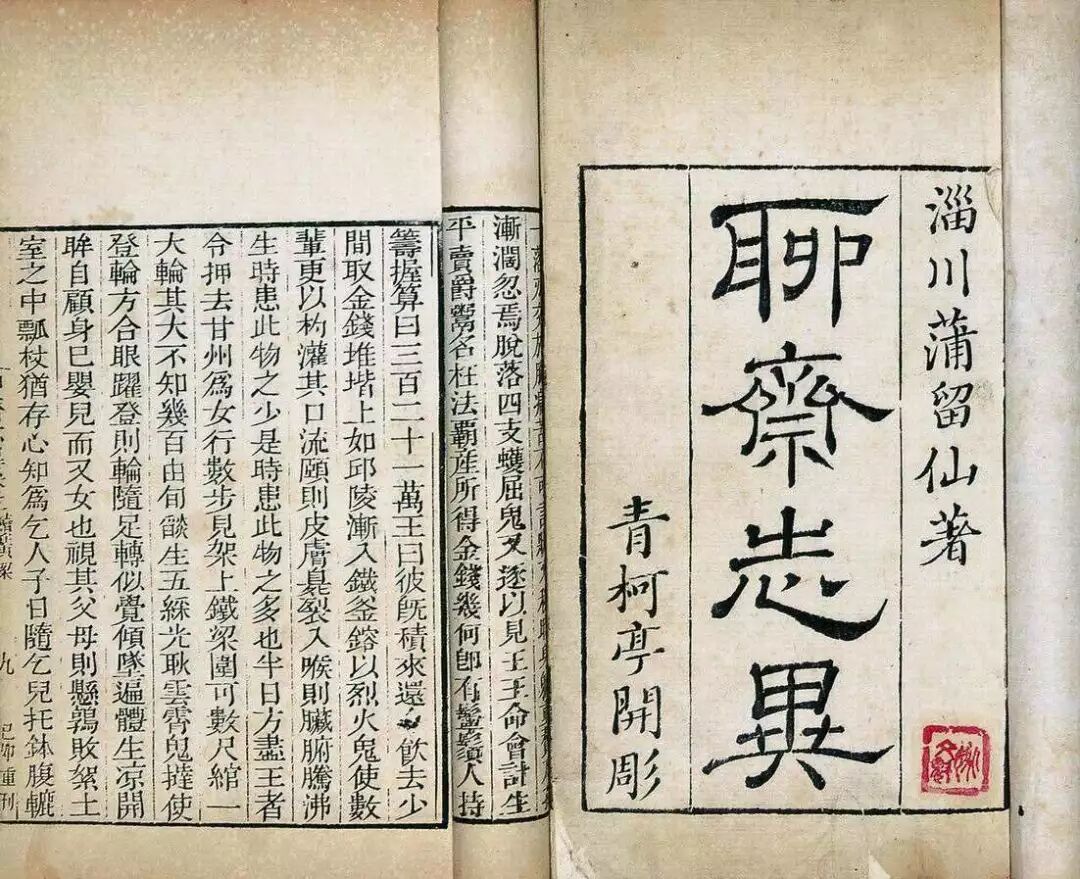 淄川蒲留仙著
聊齋志異
青柯亭開彫
漸濶忽焉脫落四支蠖屈鬼又逐以見王王命會計生
平賣爵鬻名枉法霸產所得金錢幾何卽有鬡鬚人持
籌握算曰三百二十一萬王曰彼旣積來還令飮去少
間取金錢堆堦上如邱陵漸入鐵釜鎔以烈火鬼使數
輩更以杓灌其口流頤則皮膚臭裂入喉則臟腑騰沸
生時患此物之少是時患此物之多也半日方盡王者
令押去甘州爲女行數步見架上鐵梁圍可數尺綰一
大輪其大不知幾百由旬燄生五綵光耿雲霄鬼撻使
登輪方合眼躍登則輪隨足轉似覺傾墜遍體生凉開
眸自顧身已嬰兒而又女也視其父母則懸鶉敗絮土
室之中瓢杖猶存心知爲乞人子日隨乞兒托鉢腹轆
九